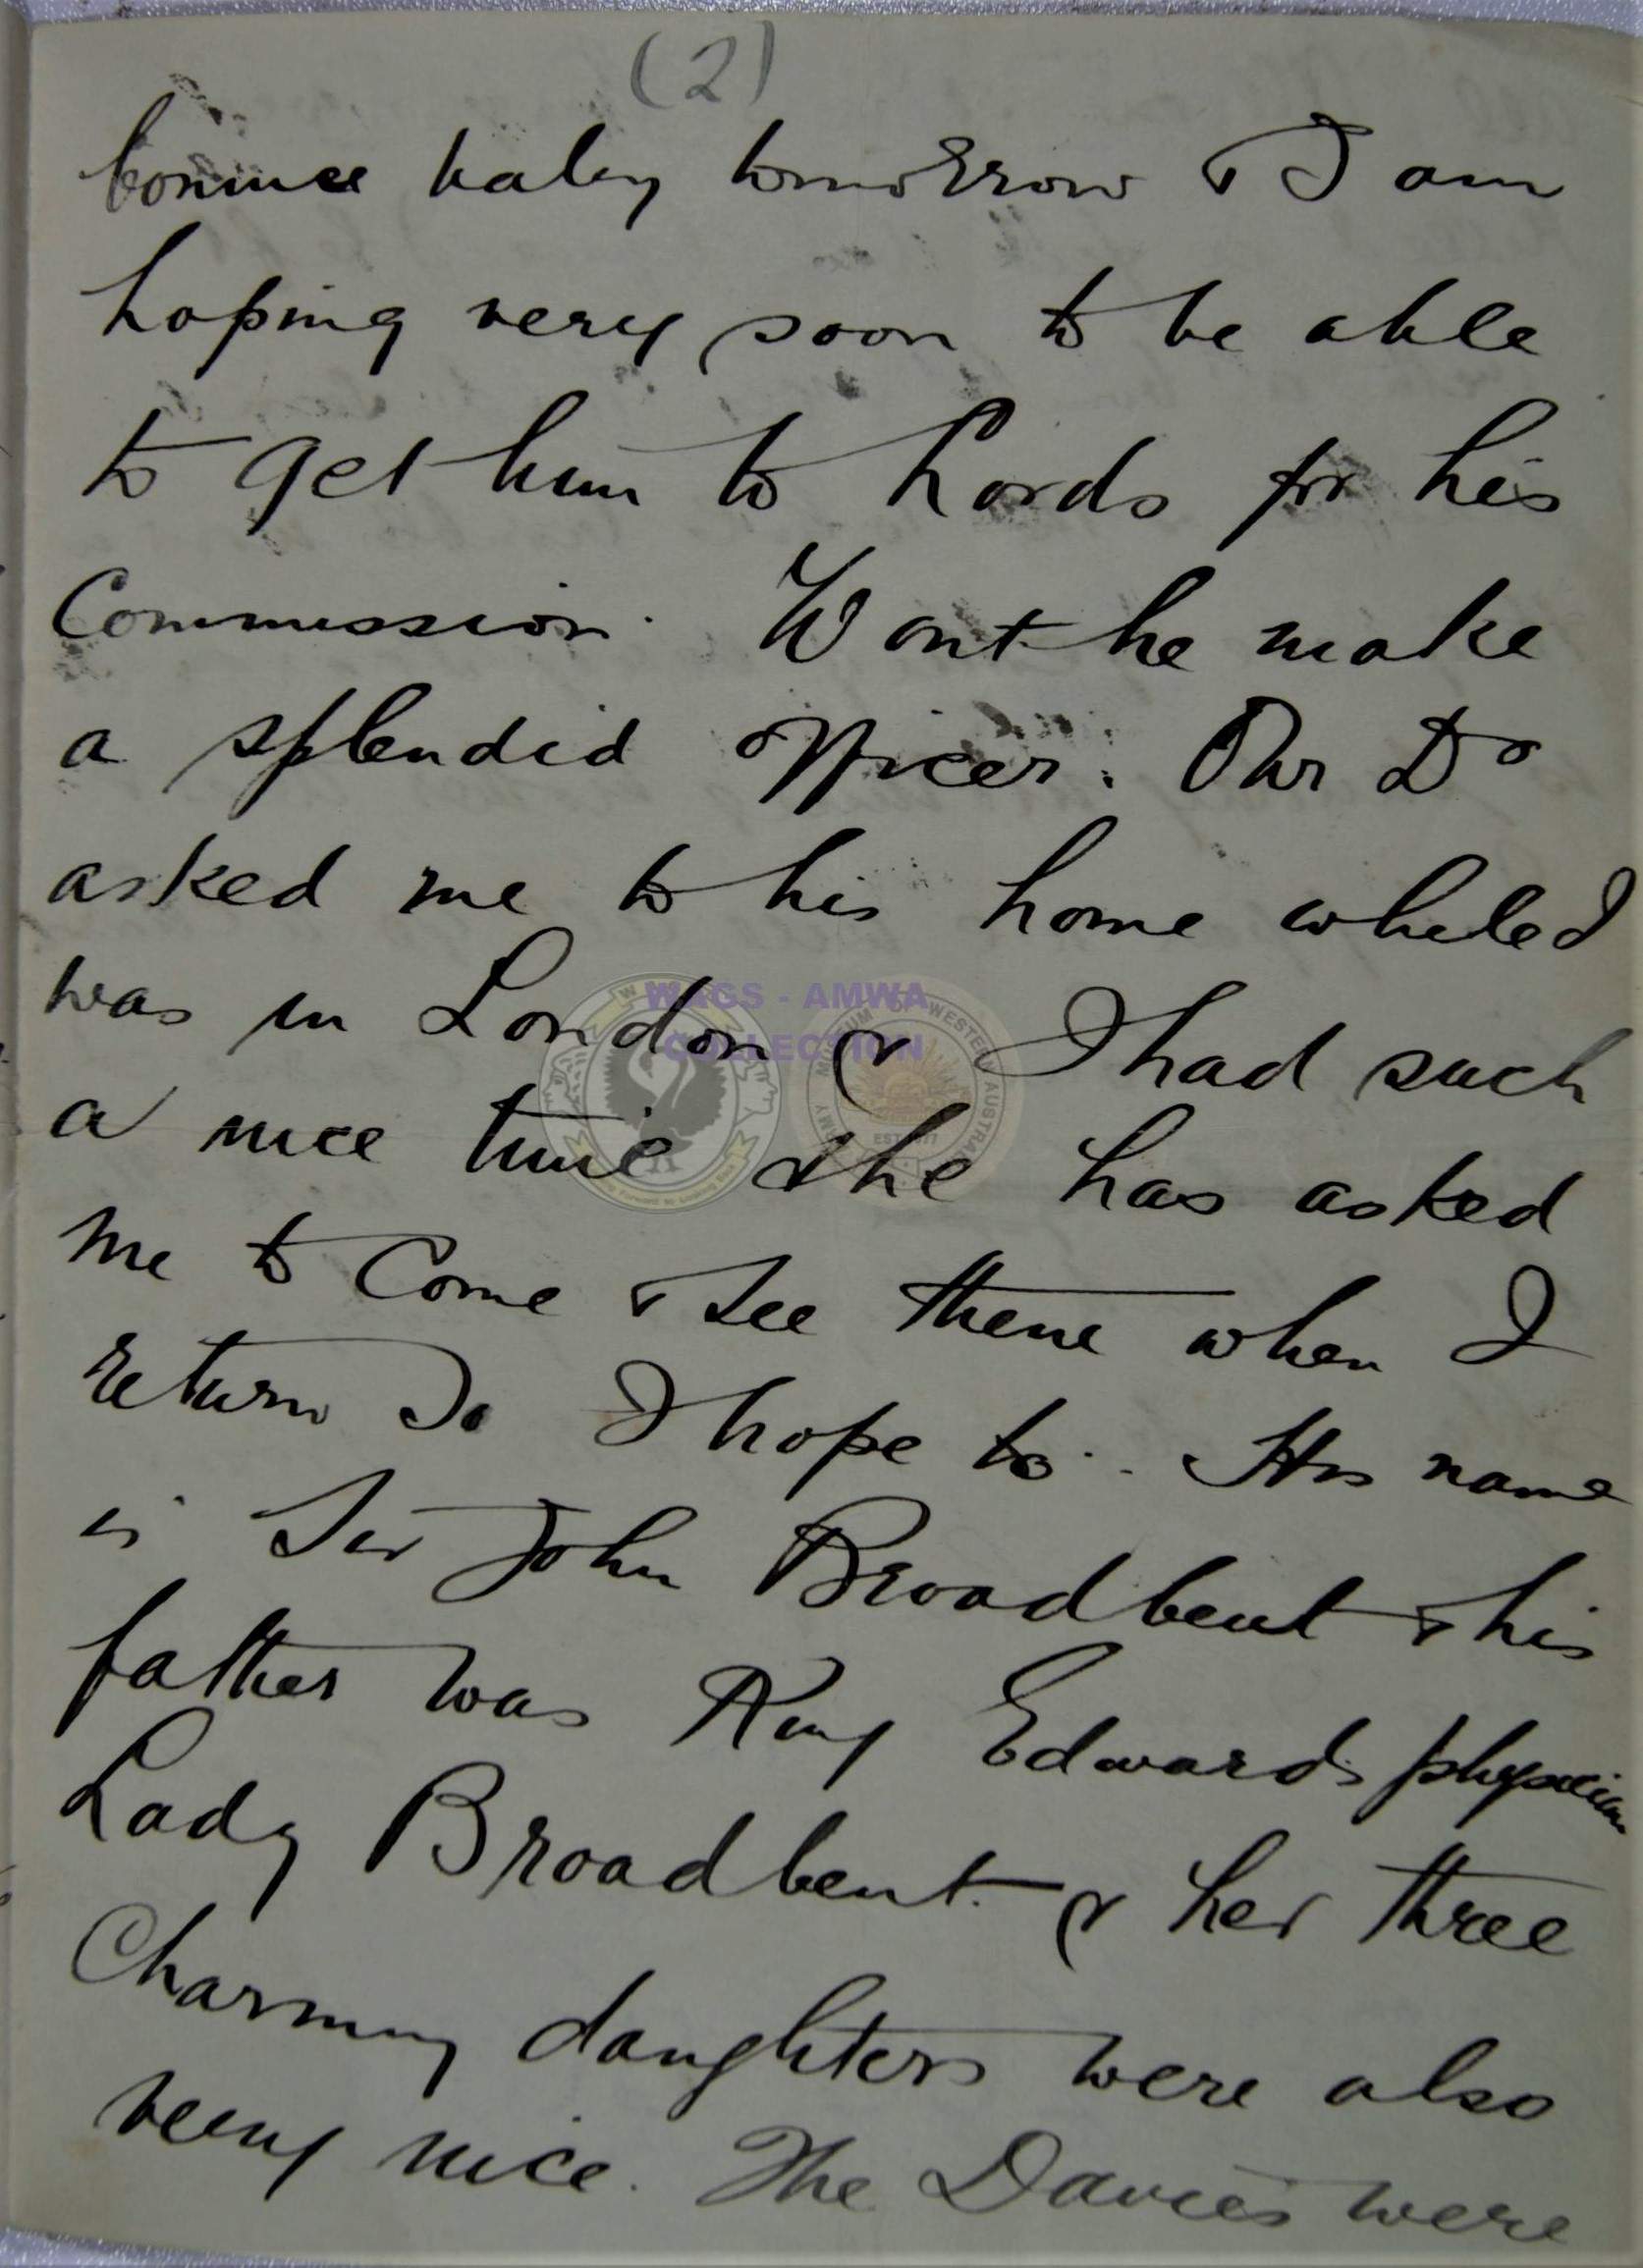 (2)
bonnee baby tomorrow & I am
hoping very soon to be able
to get him to Lords for his
Commission. Wont he make
a splendid officer. Our Dr
asked me to his home while I
was in London & I had such
a nice time & he has asked
me to come & see them when I
return So I hope to. His name
is Sir John Broadbent & his
father was King Edwards physician
Lady Broadbent & her three
Charming daughters were also
very nice. The Davies were
WAGS - AMWA
COLLECTION